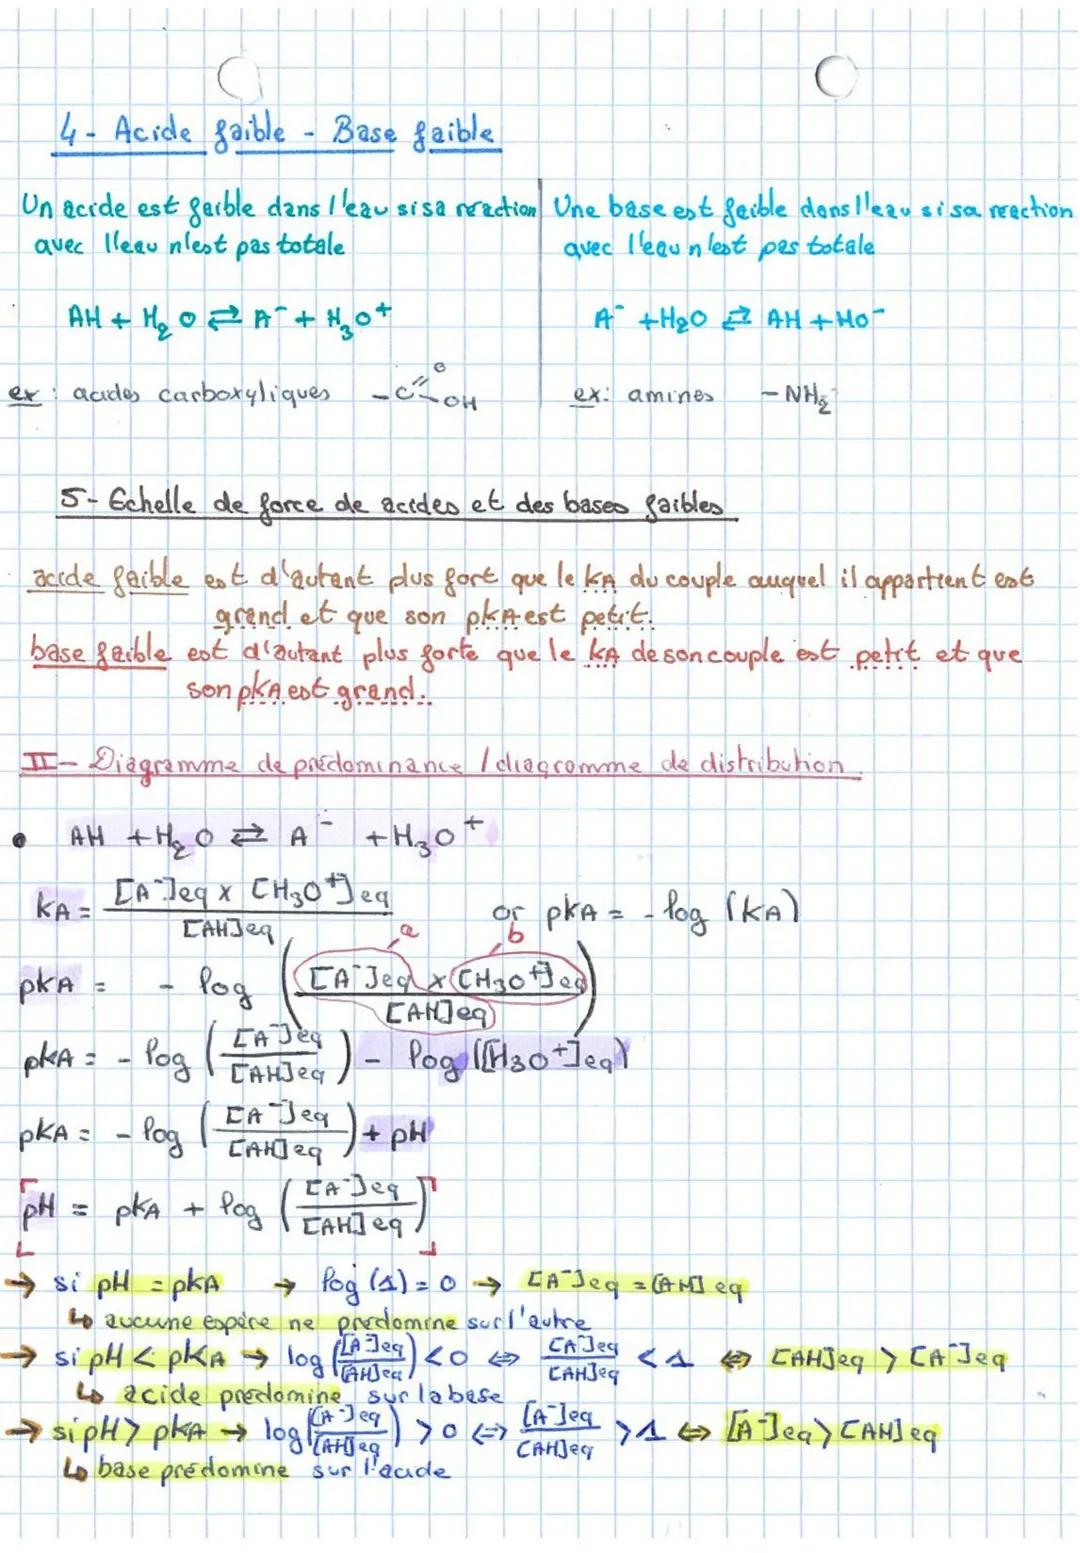 4- Acide faible - Base faible
Un acide est faible dans l'eau si sa réaction
avec l'eau n'est pas totale
AH + H₂O ⇄ A⁻ + H₃O⁺
ex : acides carboxyliques -C=O OH
Une base est faible dans l'eau si sa réaction
avec l'eau n'est pas totale
A⁻ + H₂O ⇄ AH + HO⁻
ex: amines -NH₂
5- Echelle de force de acides et des bases faibles
acide faible est d'autant plus fort que le KA du couple auquel il appartient est
grand et que son pKA est petit.
base faible est d'autant plus forte que le KA de son couple est petit et que
son pKA est grand.
II- Diagramme de prédominance / diagramme de distribution
• AH + H₂O ⇄ A⁻ + H₃O⁺
KA = [A⁻]eq x [H₃O⁺]eq / [AH]eq or pKA = -log (KA)
a b
pKA = - log ([A⁻]eq x [H₃O⁺]eq / [AH]eq)
pKA = - log ([A⁻]eq / [AH]eq) - log ([H₃O⁺]eq)
pKA = - log ([A⁻]eq / [AH]eq) + pH
pH = pKA + log ([A⁻]eq / [AH]eq)
→ si pH = pKA → log (1) = 0 → [A⁻]eq = [AH]eq
↳ aucune espèce ne prédomine sur l'autre
→ si pH < pKA → log ([A⁻]eq / [AH]eq) < 0 ⇔ [A⁻]eq / [AH]eq < 1 ⇔ [AH]eq > [A⁻]eq
↳ acide prédomine sur la base
→ si pH > pKA → log ([A⁻]eq / [AH]eq) > 0 ⇔ [A⁻]eq / [AH]eq > 1 ⇔ [A⁻]eq > [AH]eq
↳ base prédomine sur l'acide